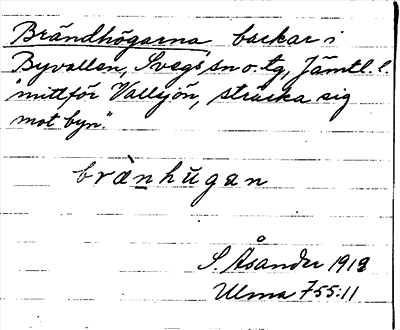 Brändhögarna backar i
Byvallen, Svegs sn o. tg, Jämtl. l.
"mittför Vallsjön, sträcka sig
mot byn".
brànhúgan
S. Åsander 1918
Ulma 755:11